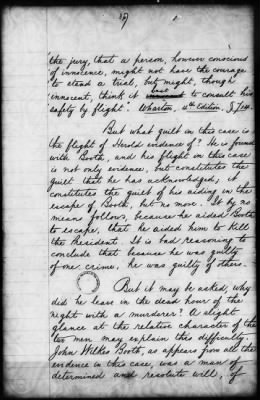 the jury, that a person, however conscious
of innocence, might not have the courage
to stand a trial; but might, though
innocent, think it best to consult his
safety by flight." Wharton, 4th Edition, § 714.
But what guilt in this case is
the flight of Herold evidence of? He is found
with Booth, and his flight in this case
is not only evidence, but constitutes the
guilt that he has acknowledged; it
constitutes the guilt of his aiding in the
escape of Booth, but no more. It by no
means follows, because he aided Booth
to escape, that he aided him to kill
the President. It is bad reasoning to
conclude that because he was guilty
of one crime, he was guilty of others.
But it may be asked, why
did he leave in the dead hour of the
night with a murderer? A slight
glance at the relative character of the
two men may explain this difficulty.
John Wilkes Booth, as appears from all the
evidence in this case, was a man of
determined and resolute will, of